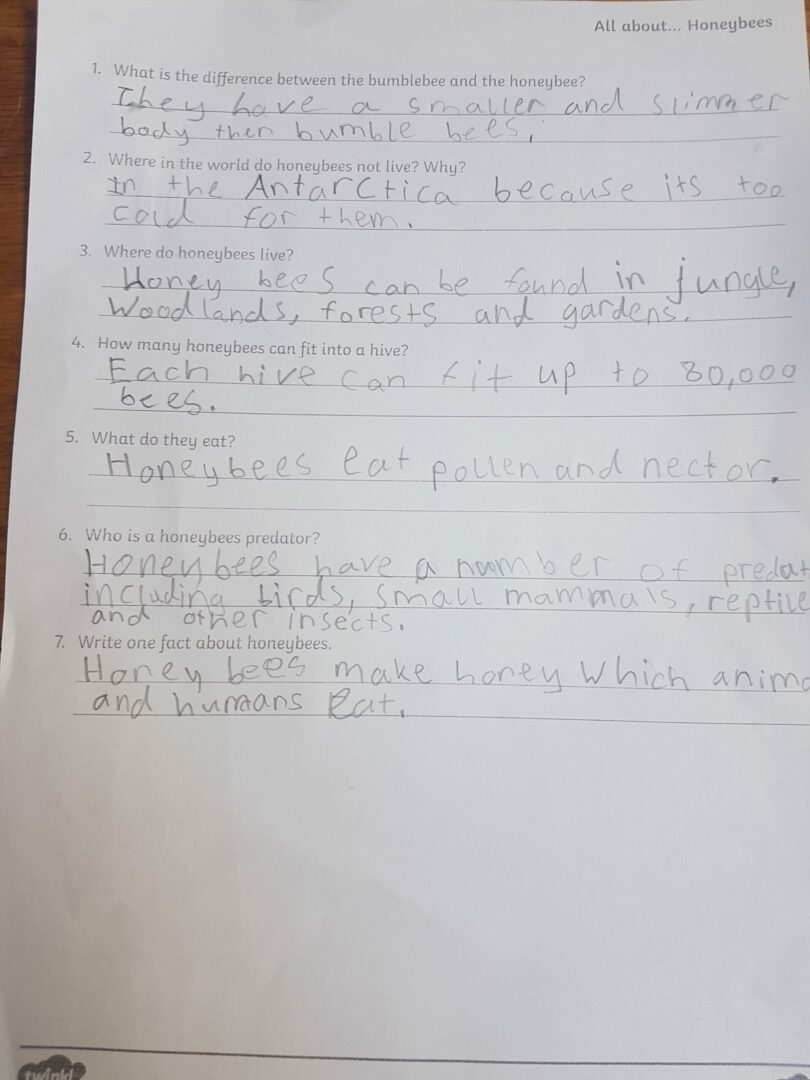 All about... Honeybees
1. What is the difference between the bumblebee and the honeybee?
They have a smaller and slimmer
body then bumble bees.
2. Where in the world do honeybees not live? Why?
In the Antarctica because its too
cold for them.
3. Where do honeybees live?
Honey bees can be found in jungle,
Woodlands, forests and gardens.
4. How many honeybees can fit into a hive?
Each hive can fit up to 80,000
bees.
5. What do they eat?
Honeybees eat pollen and nector.
6. Who is a honeybees predator?
Honeybees have a number of predat
including birds, small mammals, reptile
and other insects.
7. Write one fact about honeybees.
Honey bees make honey which anima
and humans eat.
twinkl